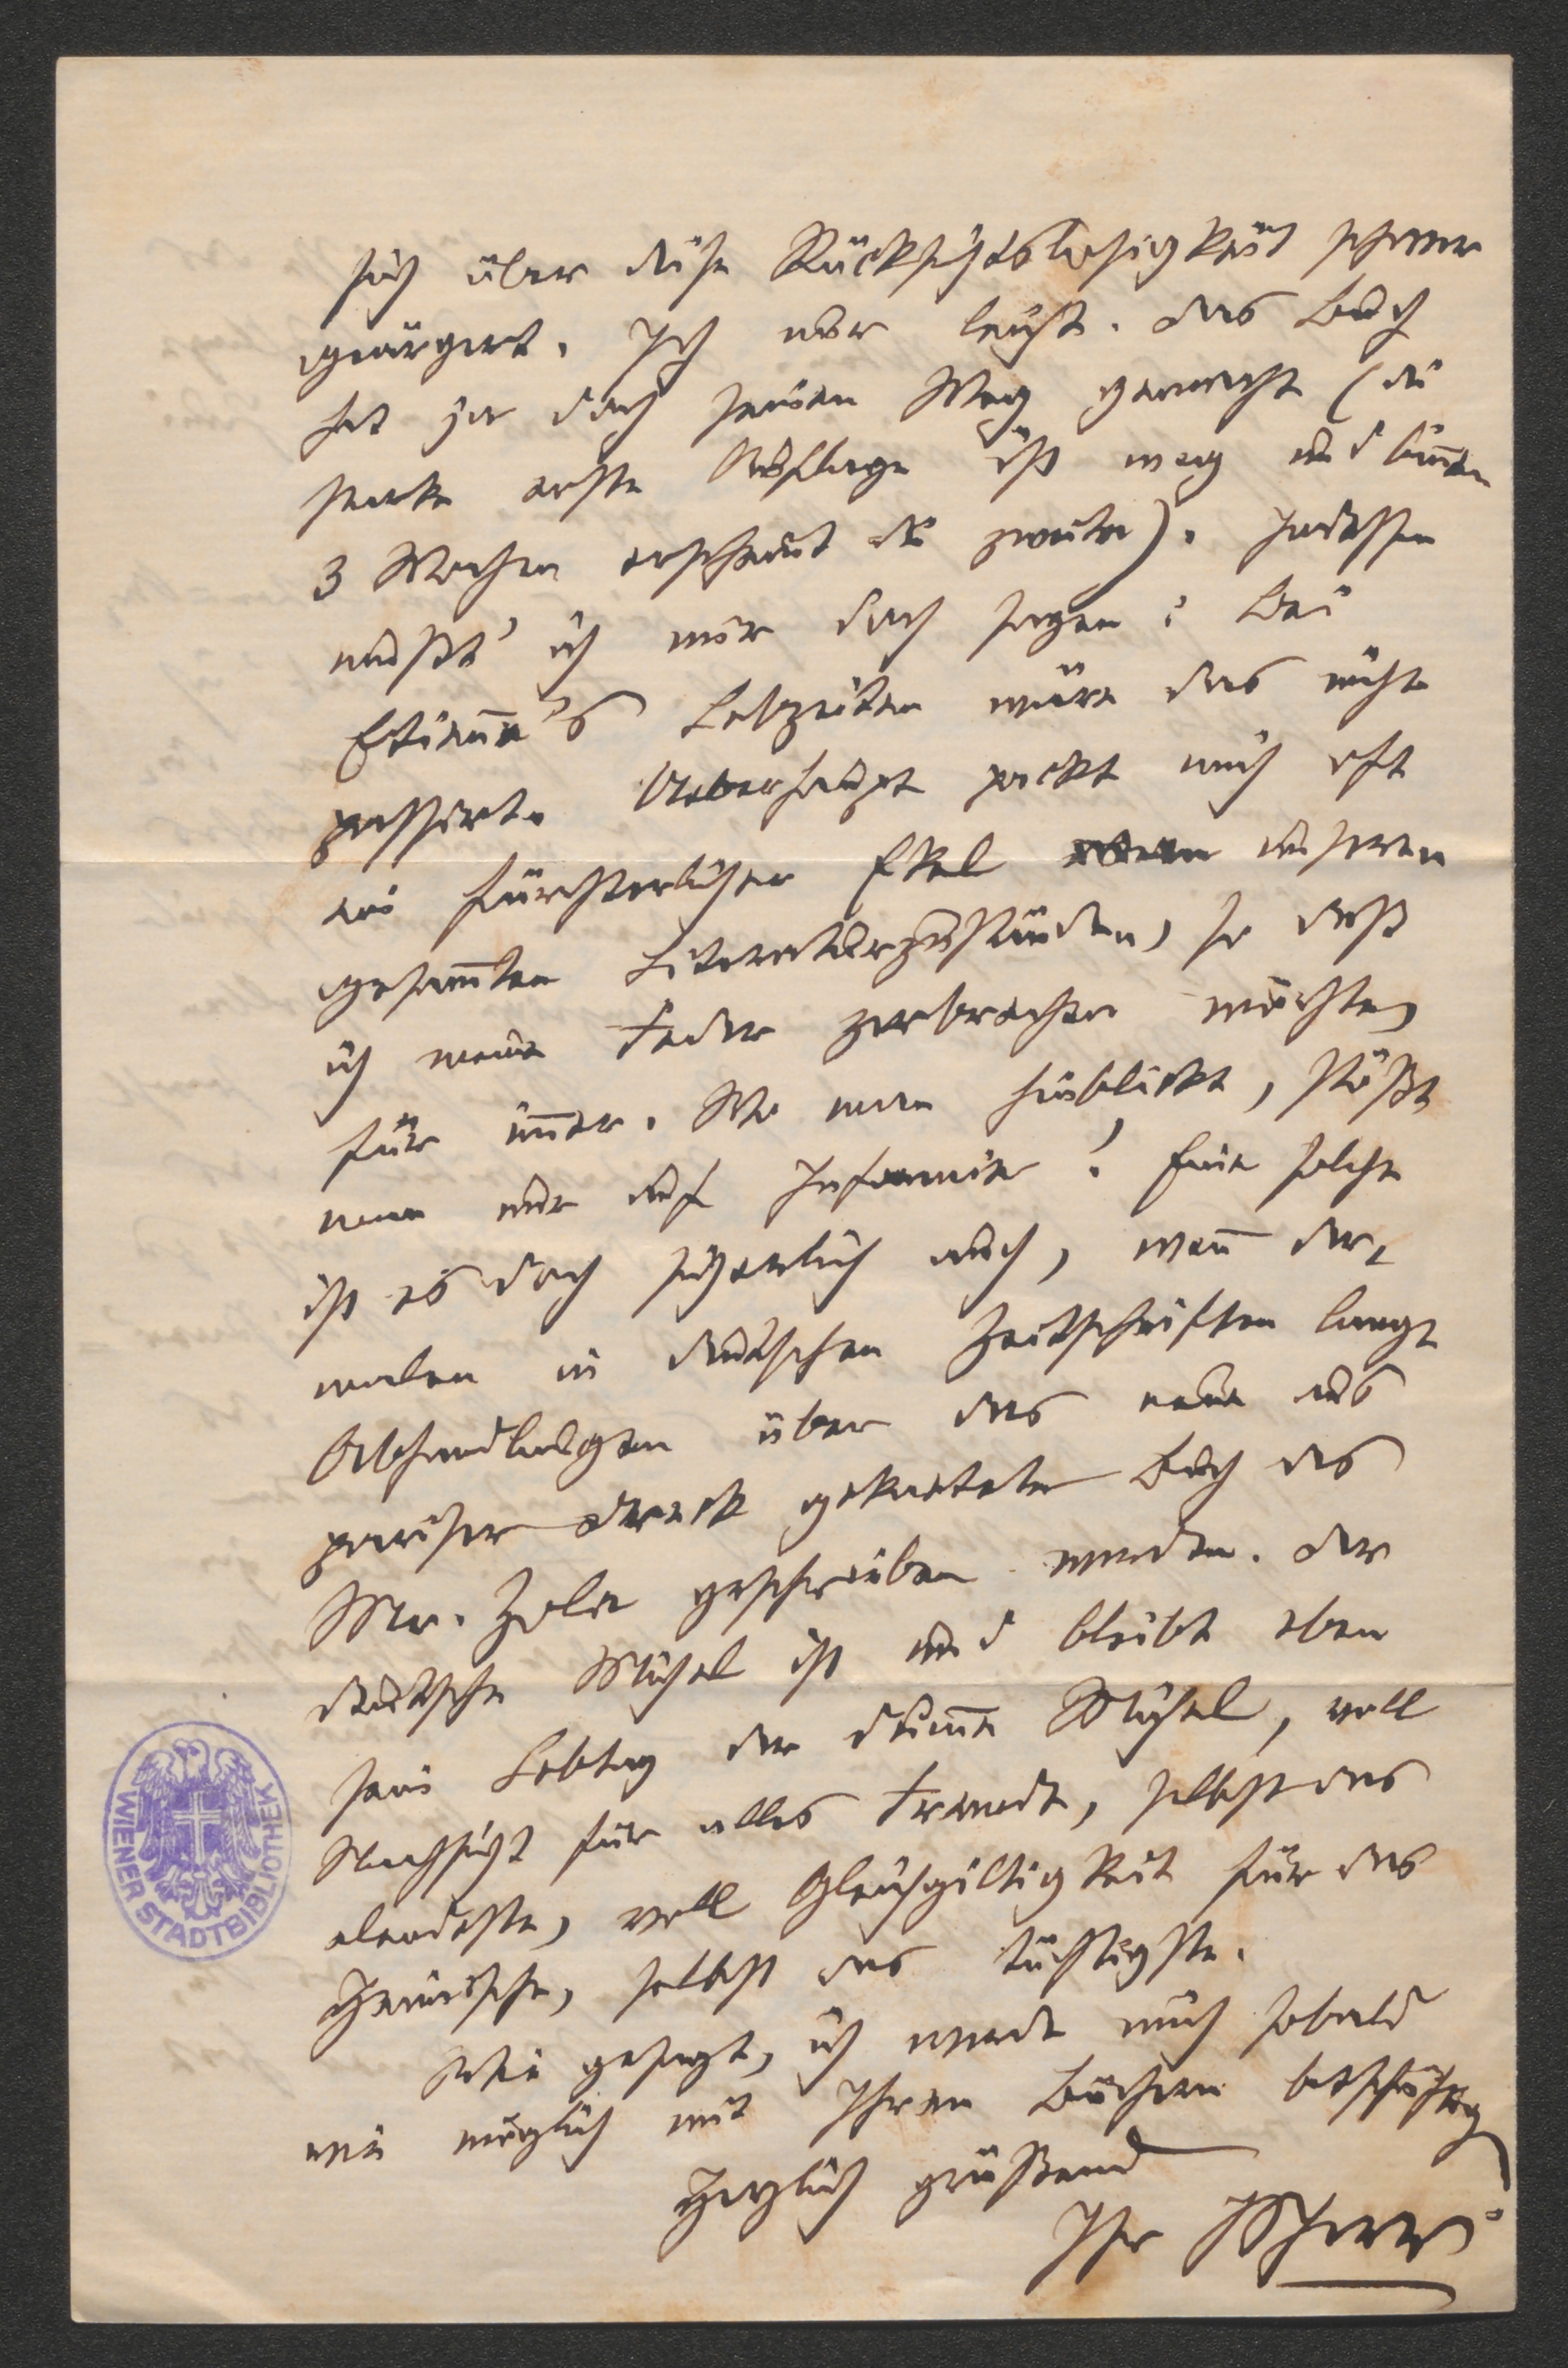 sich über diese Rücksichtslosigkeit schwer
geärgert. Ich nur leicht. Das Buch
hat ja doch seinen Weg gemacht (die
starke erste Auflage ist weg und binnen
3 Wochen erscheint die zweite). Indessen
mußt' ich mir doch sagen: Bei
Etienne's Lebzeiten wäre das nicht
passirt. Ueberhaupt packt mich oft
ein fürchterlicher Ekel an unseren
gesammten Literaturzuständen, so daß
ich meine Feder zerbrechen möchte,
für immer. Wo man hinblickt, stößt
man nur auf Infamie! Eine solche
ist es doch sicherlich auch, wenn der-
malen in deutschen Zeitschriften lange
Abhandlungen über das neue aus
pariser Dreck geknetete Buch des
Mr. Zola geschrieben werden. Der
deutsche Michel ist und bleibt eben
sein Lebtag der dumme Michel, voll
Nachsicht für alles Fremde, selbst das
elendeste, voll Gleichgiltigkeit für das
Heimische, selbst das tüchtigste.
Wie gesagt, ich werde mich sobald
wie möglich mit Ihren Büchern beschäftigen
Herzlich grüßend
Ihr JScherr
WIENER STADTBIBLIOTHEK